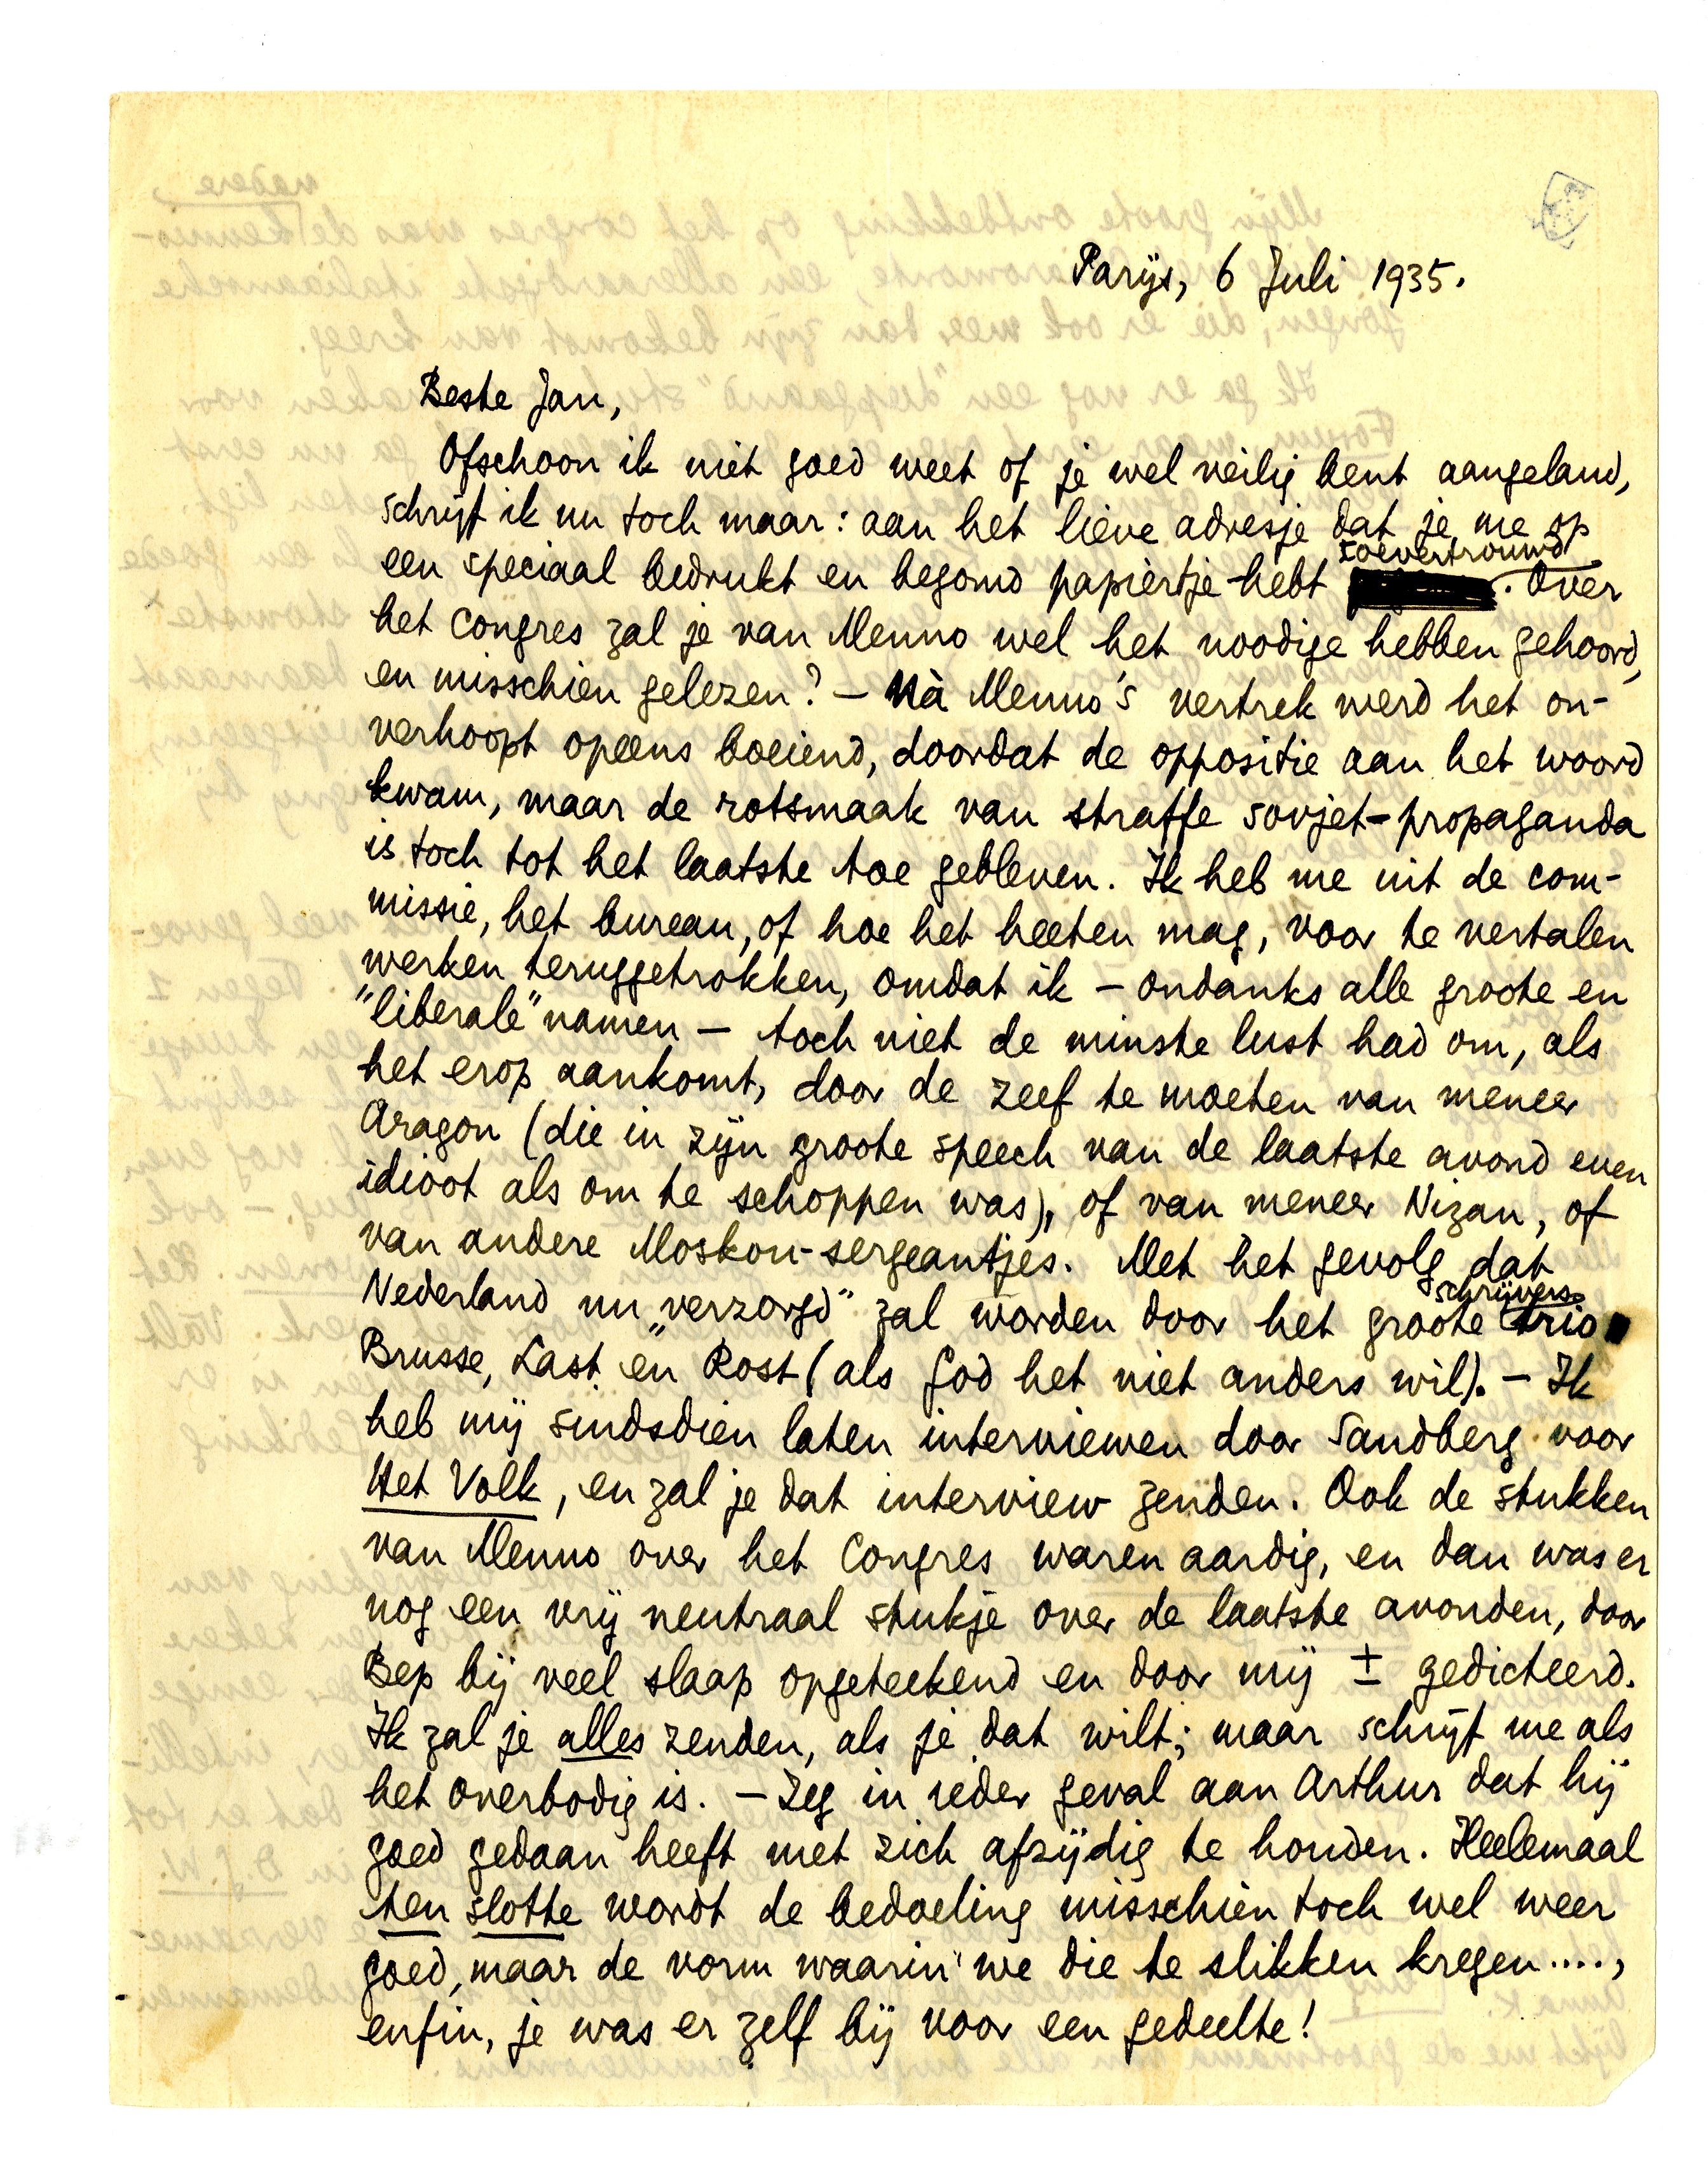 Parijs, 6 Juli 1935.
Beste Jan,
Ofschoon ik niet goed weet of je wel veilig bent aangeland,
schrijf ik nu toch maar: aan het lieve adresje dat je me op
een speciaal bedrukt en begomd papiertje hebt toevertrouwd. Over
het Congres zal je van Menno wel het noodige hebben gehoord,
en misschien gelezen? – Nà Menno's vertrek werd het on-
verhoopt opeens boeiend, doordat de oppositie aan het woord
kwam, maar de rotsmaak van straffe sovjet-propaganda
is toch tot het laatste toe gebleven. Ik heb me uit de com-
missie, het bureau, of hoe het heeten mag, voor te vertalen
werken teruggetrokken, omdat ik – ondanks alle groote en
"liberale" namen – toch niet de minste lust had om, als
het erop aankomt, door de zeef te moeten van meneer
Aragon (die in zijn groote speech van de laatste avond even
idioot als om te schoppen was), of van meneer Nizan, of
van andere Moskou-sergeantjes. Met het gevolg dat
Nederland nu „verzorgd" zal worden door het groote schrijvers-trio
Brusse, Last en Rost (als God het niet anders wil). – Ik
heb mij sindsdien laten interviewen door Sandberg voor
Het Volk, en zal je dat interview zenden. Ook de stukken
van Menno over het Congres waren aardig, en dan was er
nog een vrij neutraal stukje over de laatste avonden, door
Bep bij veel slaap opgeteekend en door mij ± gedicteerd.
Ik zal je alles zenden, als je dat wilt; maar schrijf me als
het overbodig is. – Zeg in ieder geval aan Arthur dat hij
goed gedaan heeft met zich afzijdig te houden. Heelemaal
ten slotte wordt de bedoeling misschien toch wel weer
goed, maar de vorm waarin we die te slikken kregen....,
enfin, je was er zelf bij voor een gedeelte!